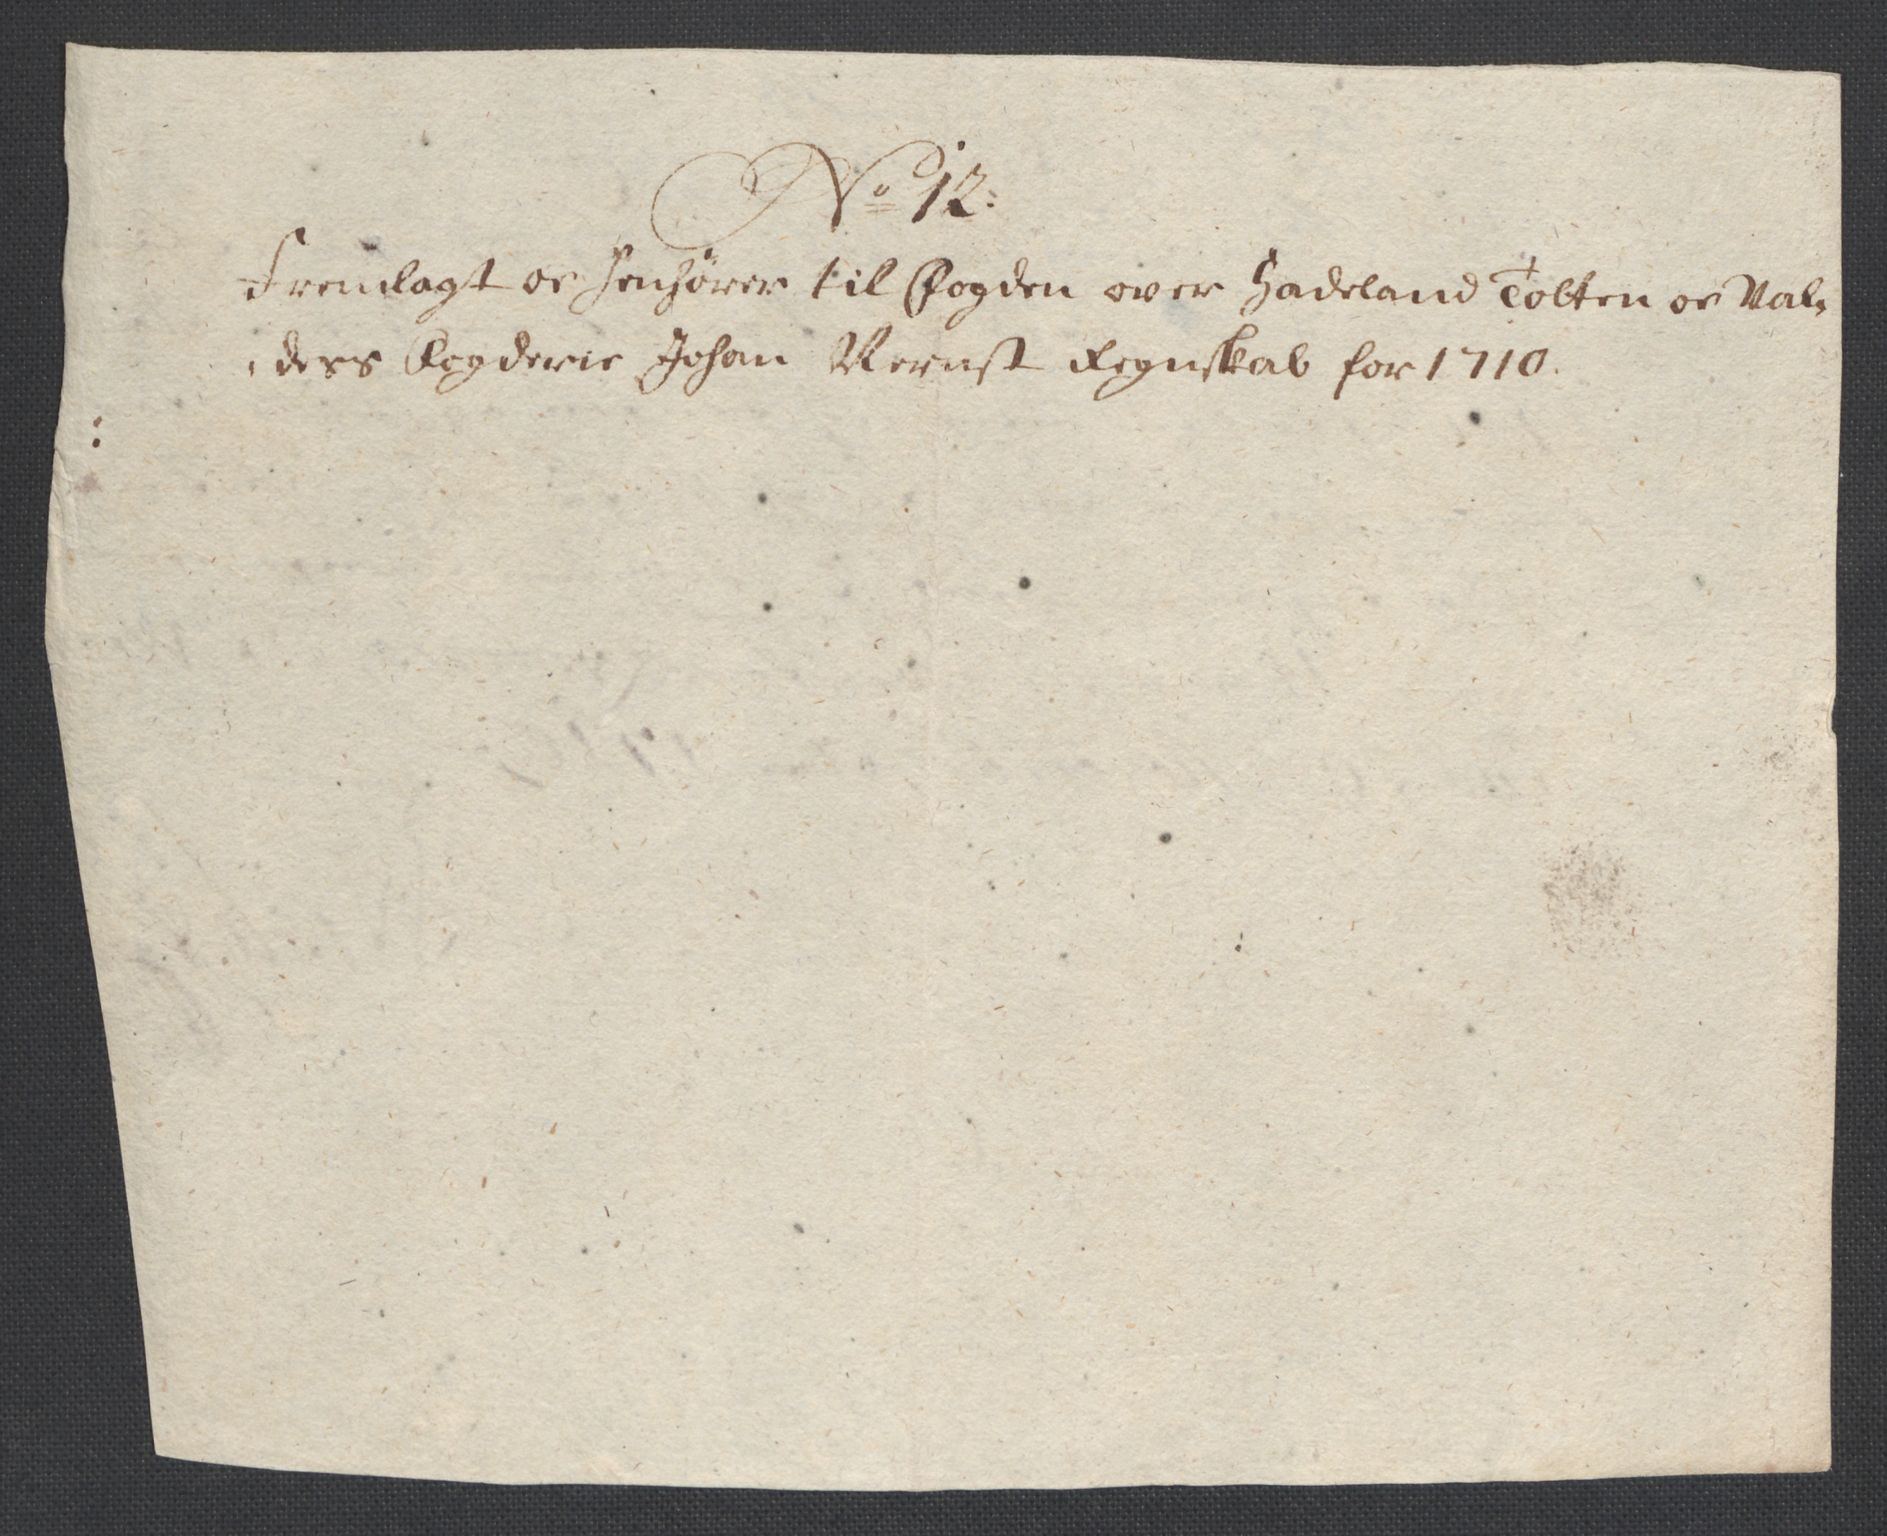 No 12:
Fremlagt oc henhører til Fogden over Hadeland Totten oc Val¬
ders Fogderie Johan Wernst Regnskab for 1710.